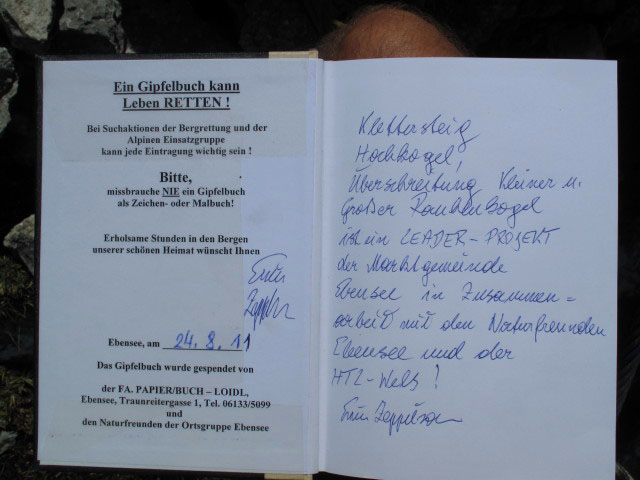 Ein Gipfelbuch kann
Leben RETTEN !
Bei Suchaktionen der Bergrettung und der
Alpinen Einsatzgruppe
kann jede Eintragung wichtig sein !
Bitte,
missbrauche NIE ein Gipfelbuch
als Zeichen- oder Malbuch!
Erholsame Stunden in den Bergen
unserer schönen Heimat wünscht Ihnen
Ebensee, am 24. 8. 11
Das Gipfelbuch wurde gespendet von
der FA. PAPIER/BUCH – LOIDL,
Ebensee, Traunreitergasse 1, Tel. 06133/5099
und
den Naturfreunden der Ortsgruppe Ebensee
Klettersteig
Hochkogel,
Überschreitung Kleiner u.
Großer Rauhenkogel
ist ein LEADER-PROJEKT
der Marktgemeinde
Ebensee in Zusammen=
arbeit mit den Naturfreunden
Ebensee und der
HTL-Wels !